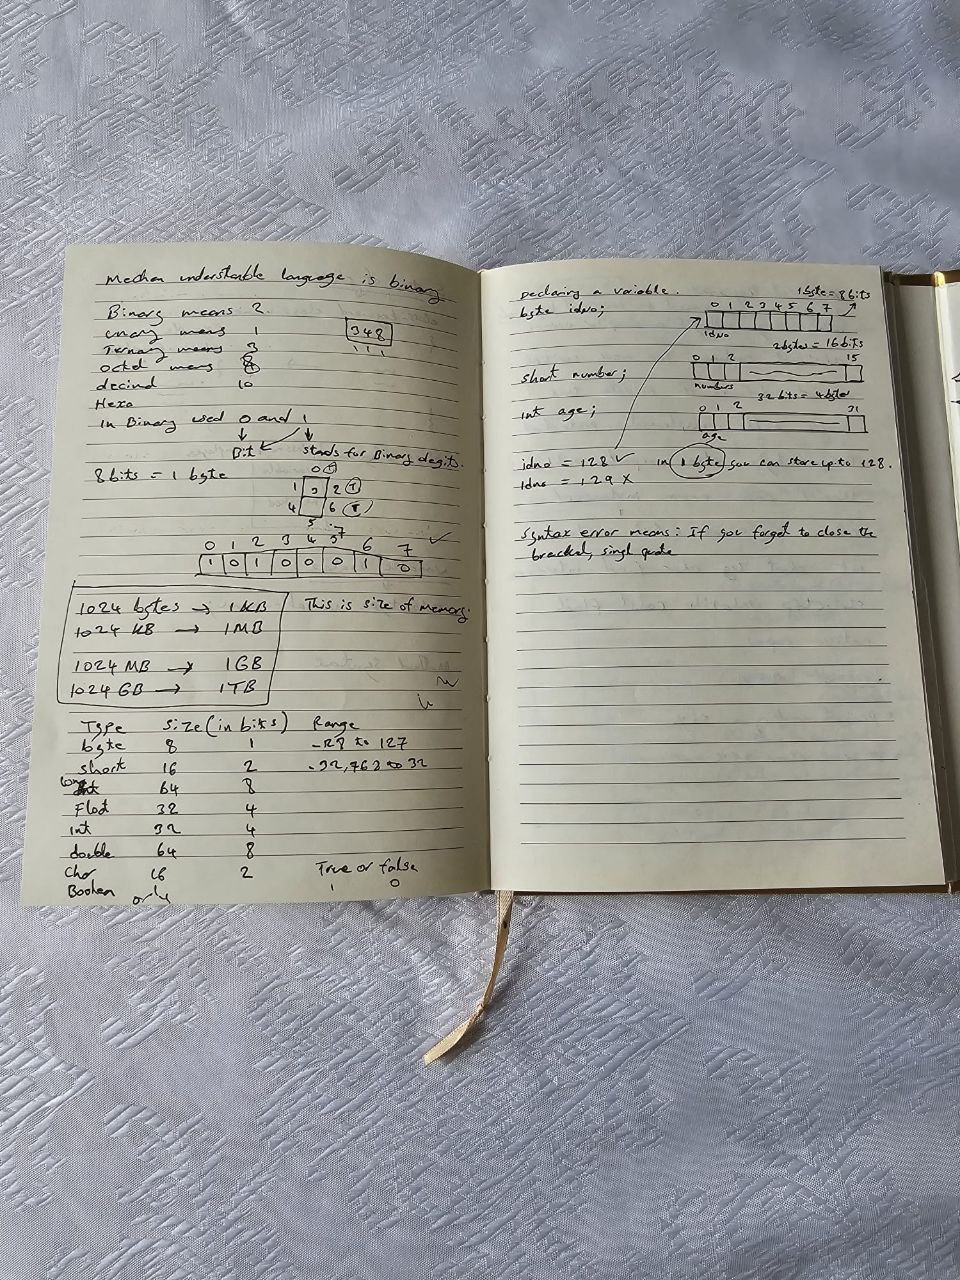 Mechan understanble language is binary
Binary means 2.
unary means 1
Ternary means 3
348
octal means 8
decimal 10
Hexa
In Binary used 0 and 1
Bit stands for Binary degits.
8 bits = 1 byte
0
1 2
4 6
5
0 1 2 3 4 5 6 7
1 0 1 0 0 0 1 0
1024 bytes → 1 KB This is size of memory.
1024 KB → 1MB
1024 MB → 1GB
1024 GB → 1TB
Type size (in bits) Range
byte 8 1 -128 to 127
short 16 2 -32,768 to 32
long 64 8
Float 32 4
int 32 4
double 64 8
Char 16 2 True or false
Boolean only 1 0
Declaring a variable. 1 byte = 8 bits
byte idno; 0 1 2 3 4 5 6 7
idno
2 bytes = 16 bits
short number; 0 1 2 15
numbers
32 bits = 4 byte
int age; 0 1 2 31
age
idno = 128 ✓ in 1 byte you can store up to 128.
idno = 129 x
Syntax error means: If you forget to close the
bracked, singl quote